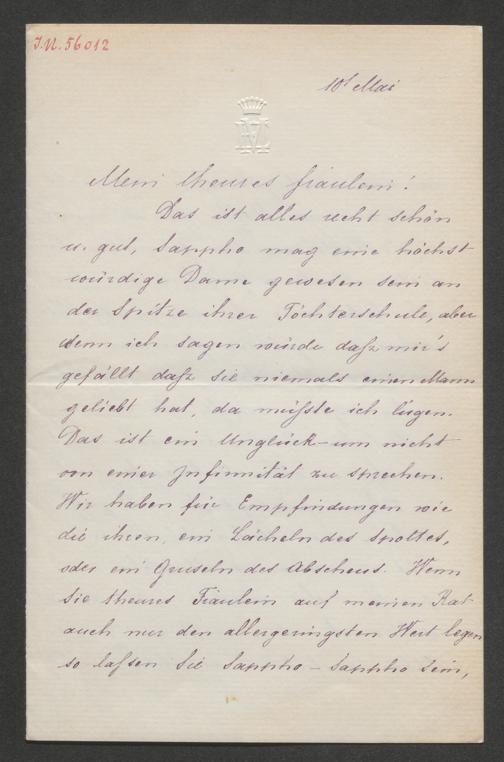 J.N. 56012
10t Mai
Mein theures Fräulein!
Das ist alles recht schön
u. gut, Sappho mag eine höchst
würdige Dame gewesen sein an
der Spitze ihrer Töchterschule, aber
wenn ich sagen würde daſz mir's
gefällt daſz sie niemals einen Mann
geliebt hat, da müſste ich lügen.
Das ist ein Unglück – um nicht
von einer Infirmität zu sprechen.
Wir haben für Empfindungen wie
die ihren, ein Lächeln des Spottes,
oder ein Gruseln des Abscheus. Wenn
Sie theures Fräulein auf meinen Rat
auch nur den allergeringsten Wert legen
so laſsen Sie Sappho – Sappho sein,